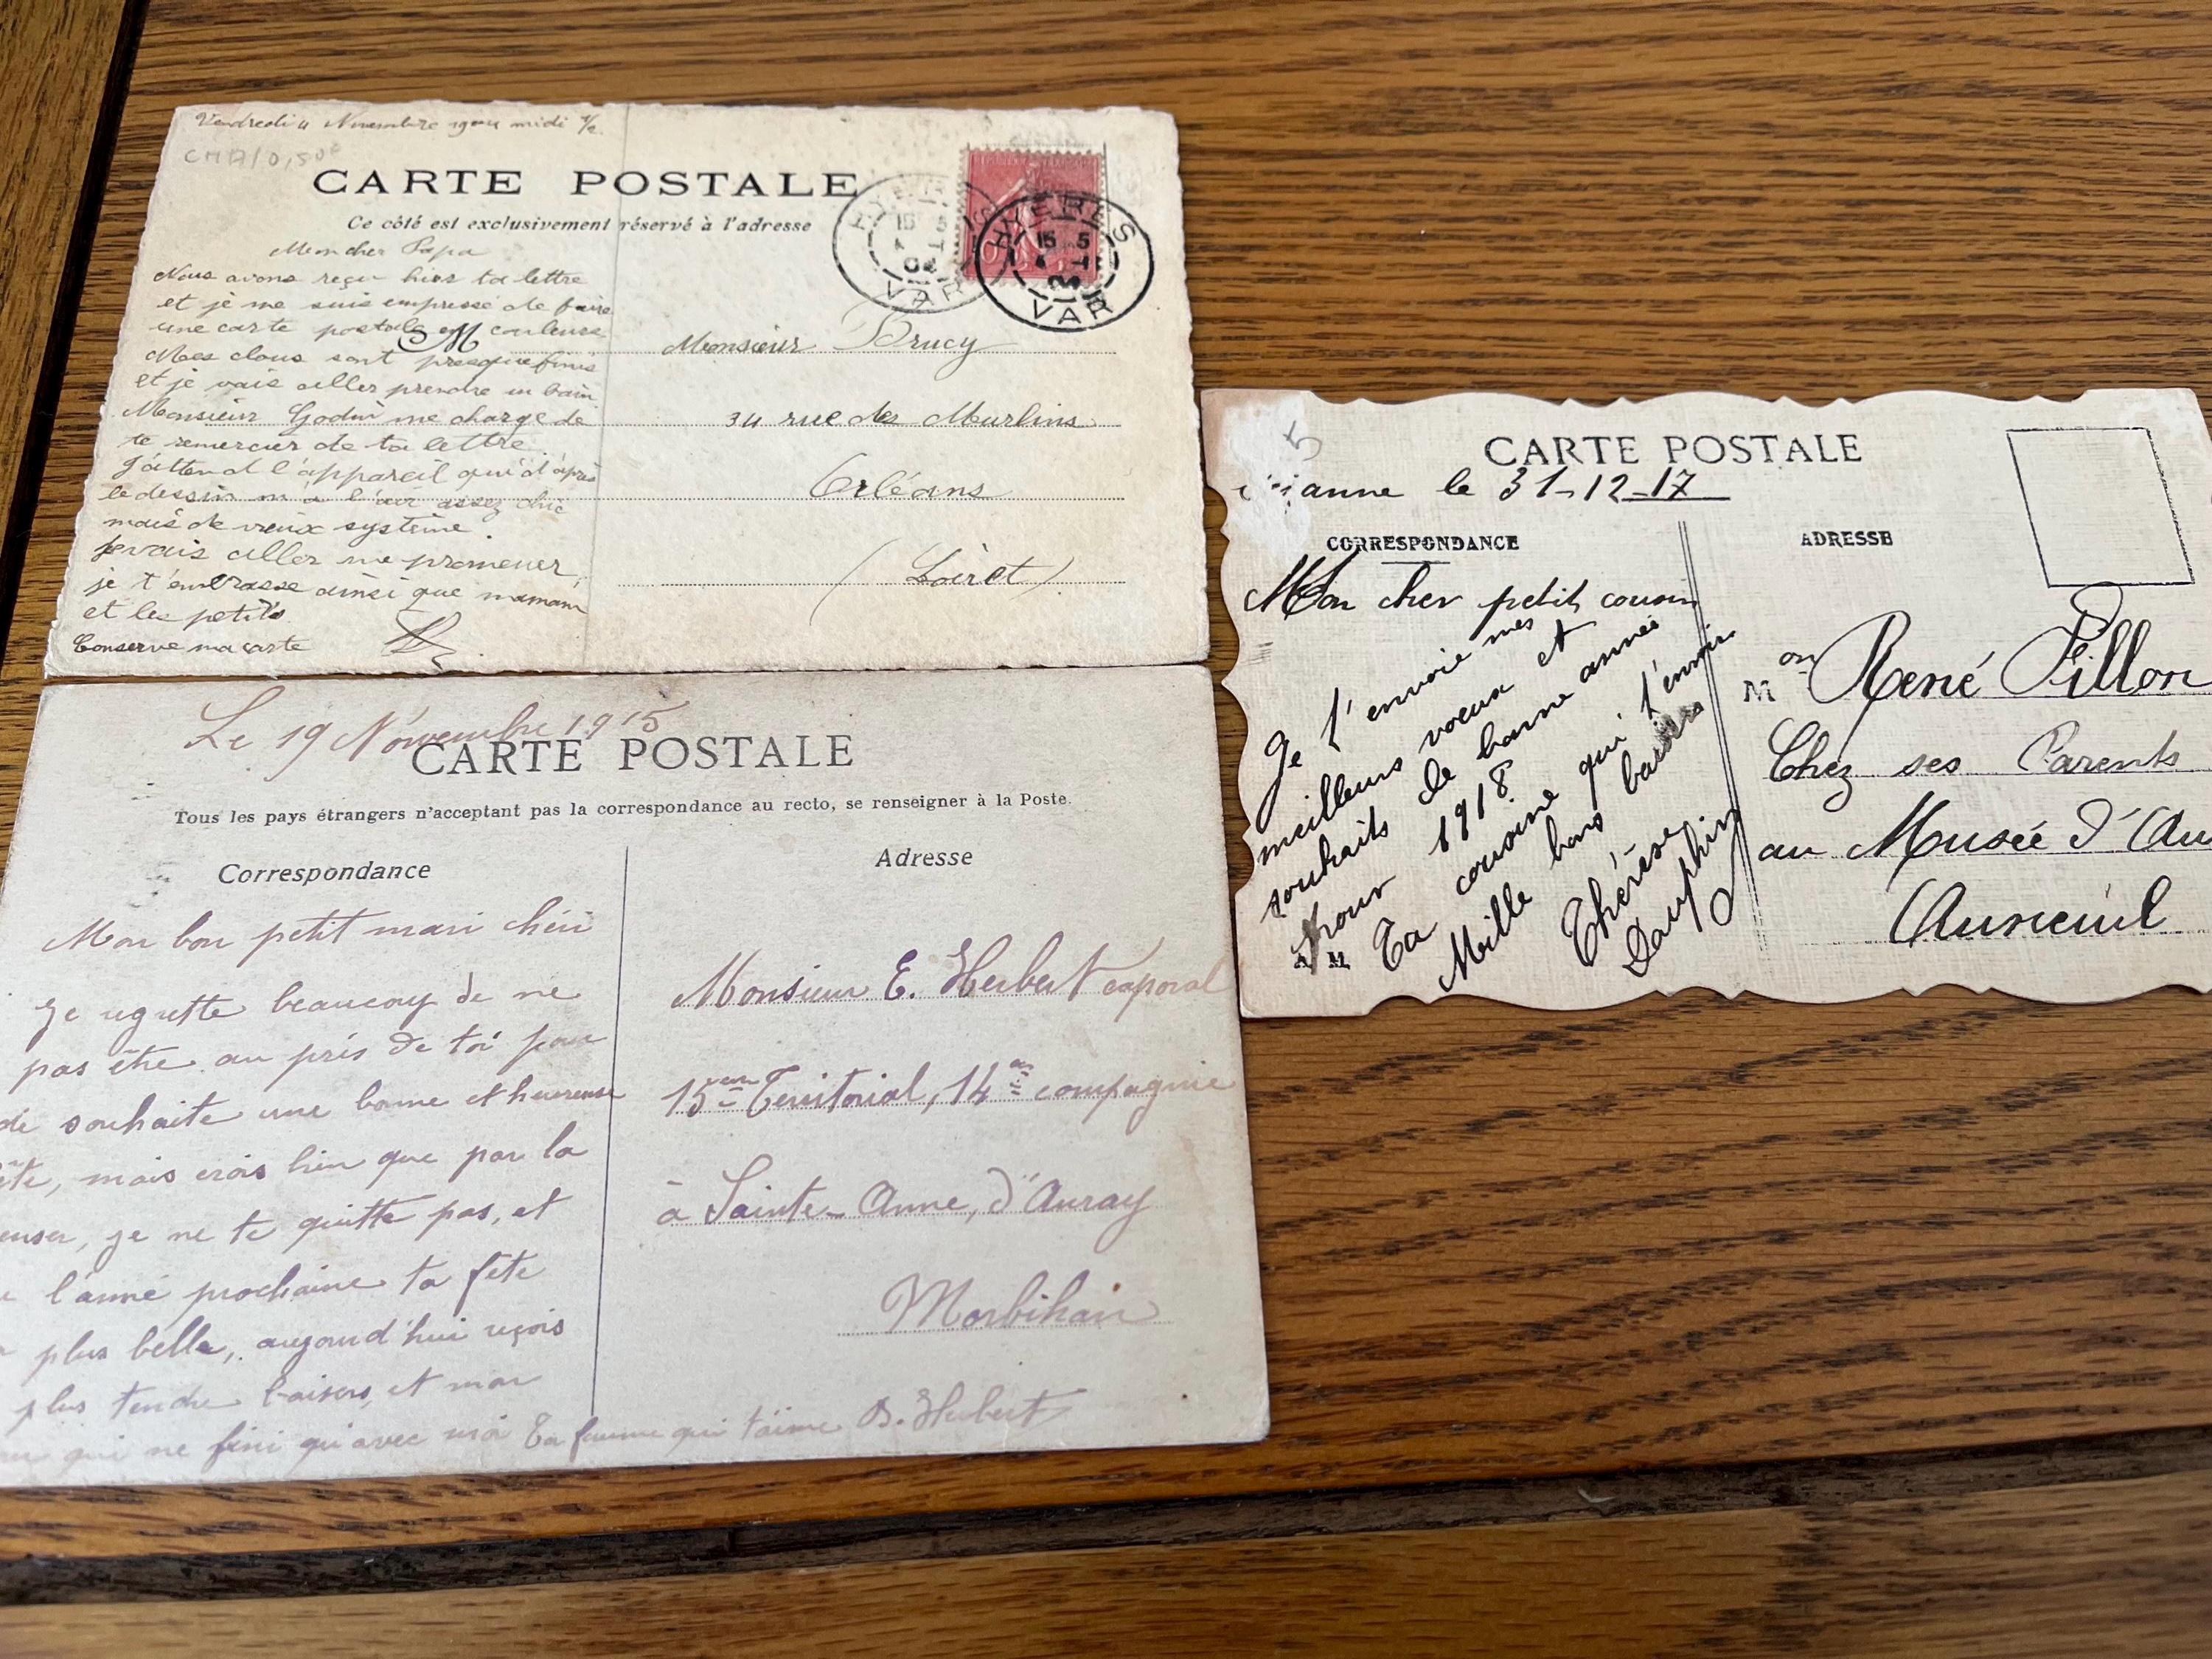 Vendredi 4 Novembre 1904 midi 1/2
CARTE POSTALE
Ce côté est exclusivement réservé à l'adresse
Mon cher Papa
Nous avons reçu hier ta lettre
et je me suis empressé de faire
une carte postale en couleurs
Mes clous sont presque finis
et je vais aller prendre un bain
Monsieur Godin me charge de
te remercier de ta lettre
J'attend l'appareil qui d'après
le dessin m'a l'air assez chic
mais de vieux système.
Je vais aller me promener,
je t'embrasse ainsi que maman
et les petits
Conserve ma carte
HYERES
VAR
HYERES
15 5
VAR
M
Monsieur Brucy
34 rue des Murlins
Orléans
(Loiret)
Le 19 Novembre 1915
CARTE POSTALE
Tous les pays étrangers n'acceptant pas la correspondance au recto, se renseigner à la Poste.
Correspondance
Mon bon petit mari chéri
Je regrette beaucoup de ne
pas être au près de toi pour
de souhaite une bonne et heureuse
mais crois bien que par la
je ne te quitte pas, et
l'anné prochaine ta fête
plus belle, aujourd'hui reçois
plus tendre baisers, et mon
qui ne fini qu'avec moi Ta femme qui t'aime B. Herbert
Adresse
Monsieur E. Herbert caporal
Territorial, compagnie
à Sainte-Anne, d'Auray
Morbihan
5
CARTE POSTALE
le 31-12-17
CORRESPONDANCE
Mon cher petit cousin
Je t'envoie mes
meilleurs voeux et
souhaits de bonne année
pour 1918
Ta cousine qui t'envoie
Mille bons baisers
Thérèse
Dauphin
A M
ADRESSE
Mon René Pillon
Chez ses Parents
au Musée d'Au
Auneuil